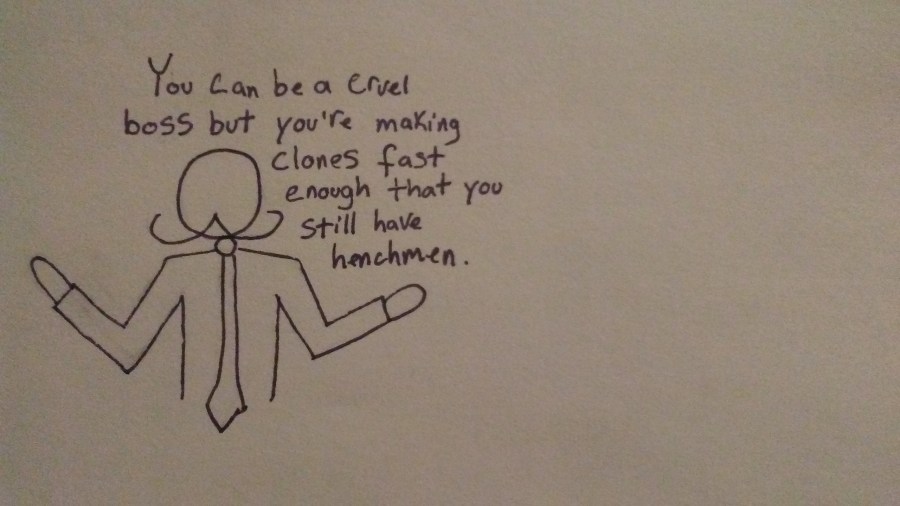 You can be a cruel
boss but you're making
clones fast
enough that you
still have
henchmen.